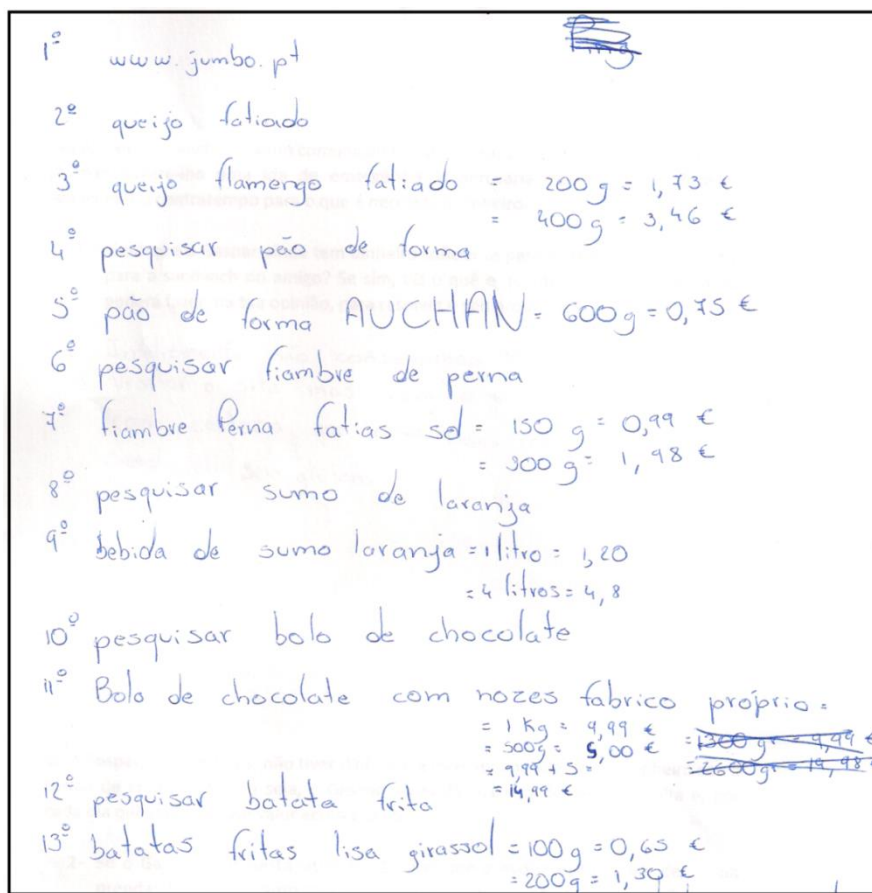 1º www.jumbo.pt
2º queijo fatiado
3º queijo flamengo fatiado = 200 g = 1,73 €
= 400 g = 3,46 €
4º pesquisar pão de forma
5º pão de forma AUCHAN = 600g = 0,75 €
6º pesquisar fiambre de perna
7º fiambre Perna fatias sol = 150 g = 0,99 €
= 300 g = 1,98 €
8º pesquisar sumo de laranja
9º bebida de sumo laranja = 1 litro = 1,20
= 4 litros = 4,8
10º pesquisar bolo de chocolate
11º Bolo de chocolate com nozes fabrico próprio =
= 1 Kg = 9,99 €
= 500g = 5,00 € = 1300 gr = 9,99 €
= 9,99 + 5 = = 2600 gr = 19,98 €
= 14,99 €
12º pesquisar batata frita
13º batatas fritas lisa girassol = 100 g = 0,65 €
= 200 g = 1,30 €